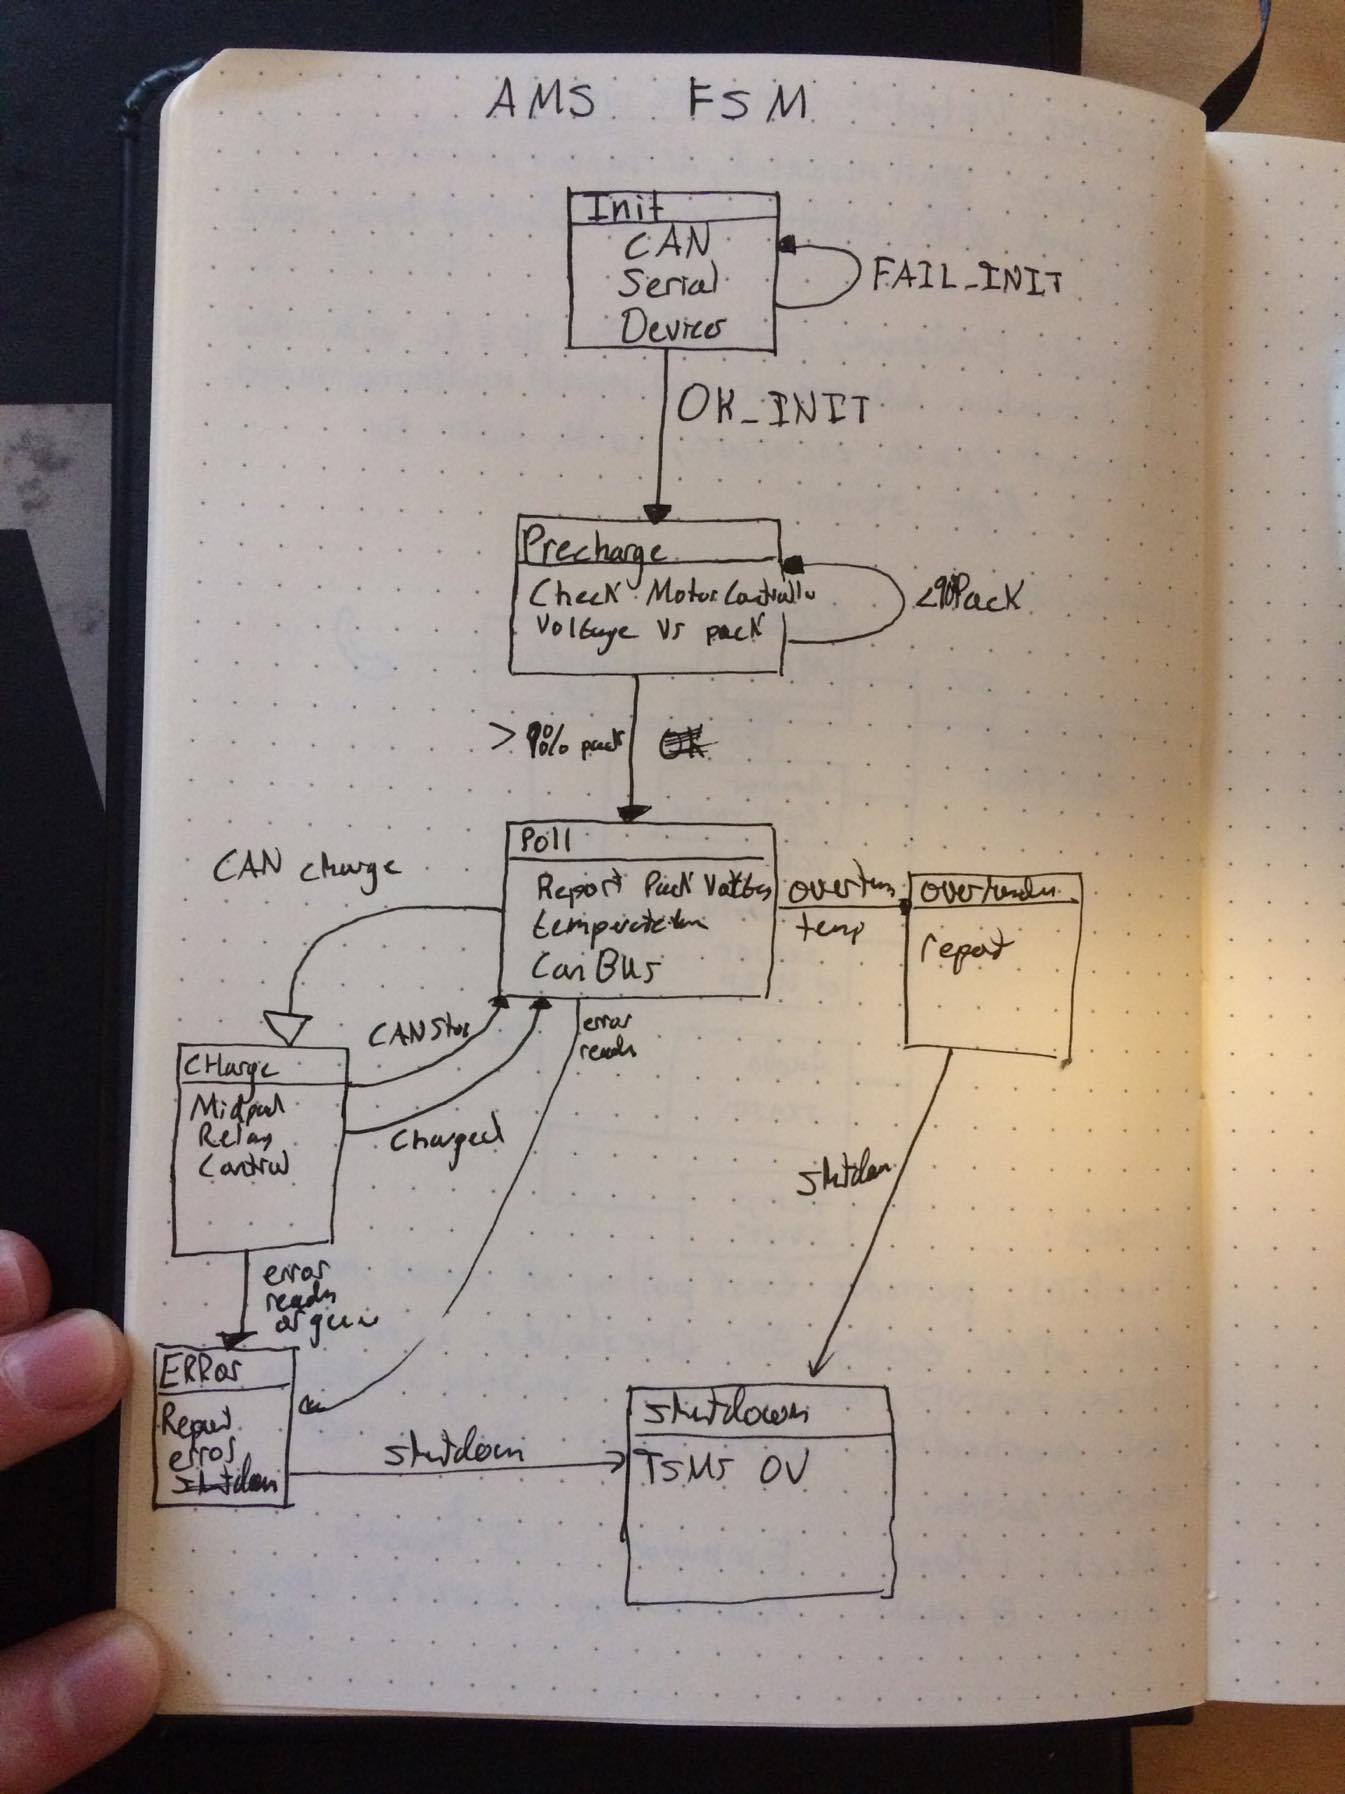 AMS FSM
Init
CAN
Serial
Devices
FAIL_INIT
OK_INIT
Precharge
Check Motor Controller
Voltage Vs pack
<90%Pack
> 90% pack
OK
Poll
Report Pack
temperature
Can BUS
CAN charge
overtemp
temp
report
CAN Stop
error
reads
CHarge
Midpack
Relay
Control
Charged
shutdown
error
reads
ERRor
Report
error
shutdown
shutdown
shutdown
TSMS OV